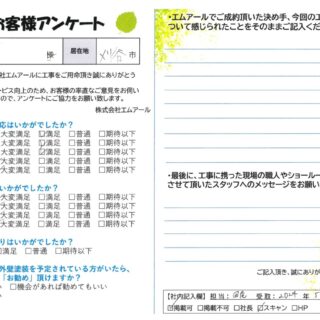 お客様アンケート
様
居在地
刈谷市
社エムアールに工事をご用命頂き誠にありがとう
ービス向上のため、お客様の率直なご意見をお伺い
ので、アンケートにご協力をお願い致します。
株式会社エムアール
応はいかがでしたか？
大変満足 ☑満足 □普通 □期待以下
大変満足 ☑満足 □普通 □期待以下
大変満足 ☑満足 □普通 □期待以下
いかがでしたか？
大変満足 □満足 □普通 □期待以下
大変満足 □満足 □普通 □期待以下
大変満足 □満足 □普通 □期待以下
りはいかがでしたか？
大変満足 □満足 □普通 □期待以下
外壁塗装を予定されている方がいたら、
「お勧め」頂けますか？
い □機会があれば勧めてもいい
い
・エムアールでご成約頂いた決め手、今回の工
ついて感じられたことをそのままご記入くだ
・最後に、工事に携った現場の職人やショールー
させて頂いたスタッフへのメッセージをお願い
ご記入頂き、誠にあり
【社内記入欄】 担当： 受取：2014
☑掲載可 □掲載不可 □社長 ☑スキャン □HP